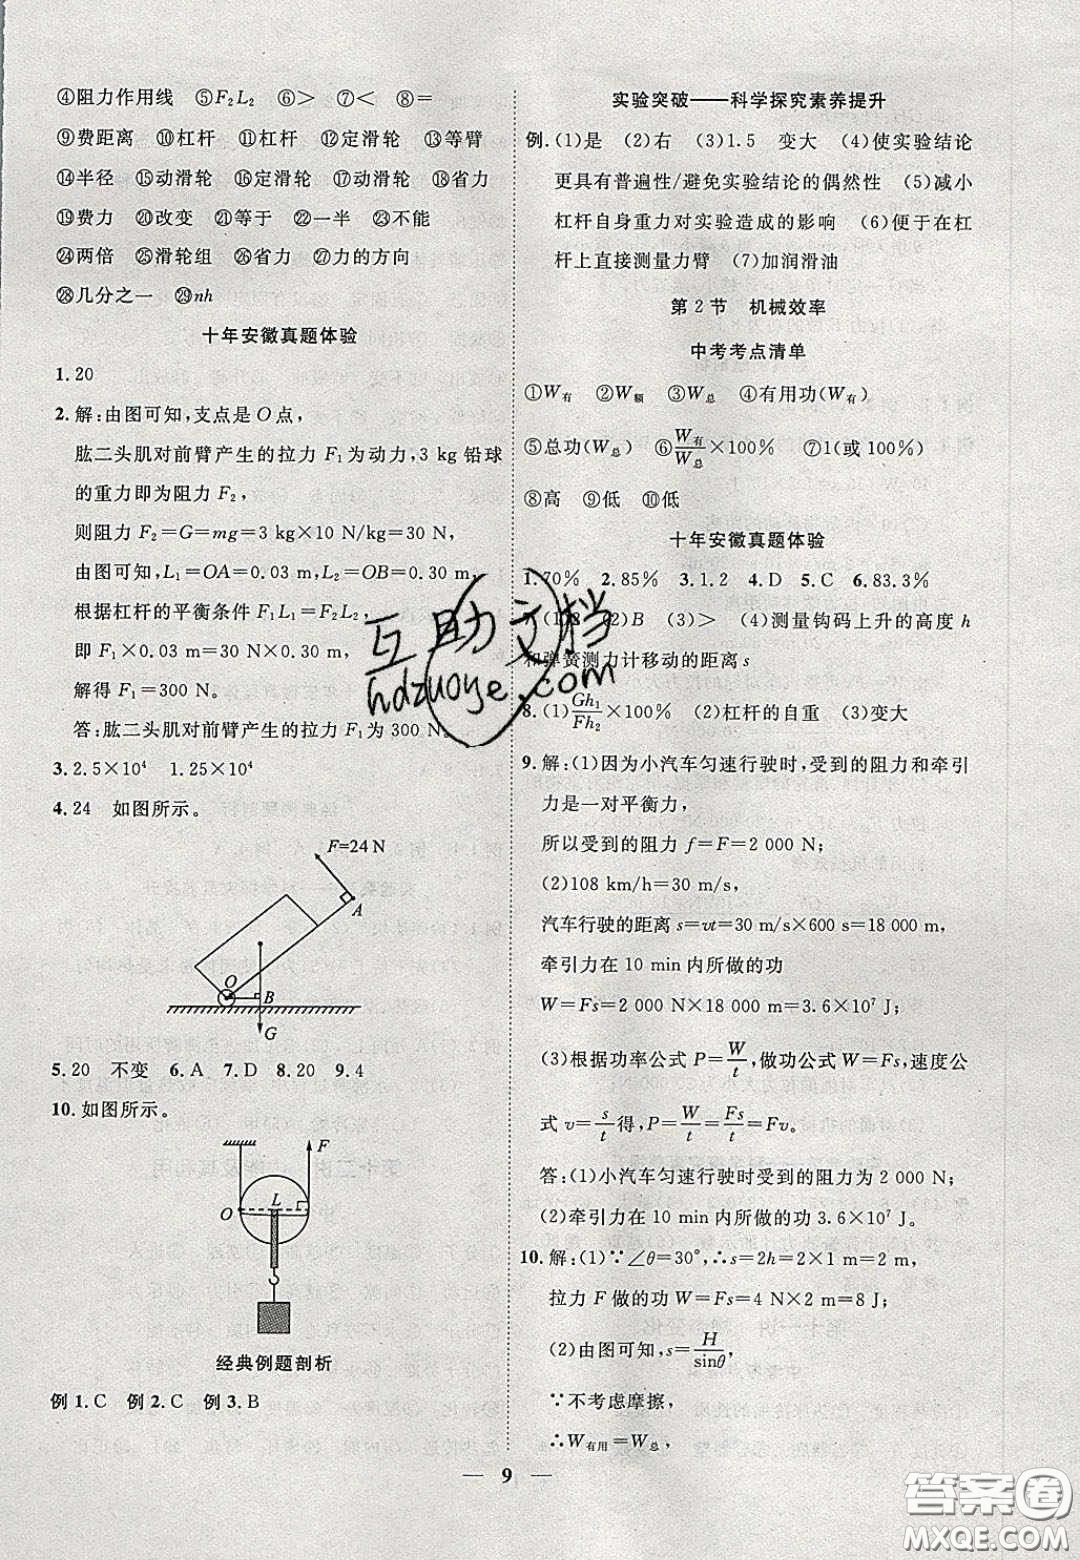 ④阻力作用线　⑤F₂L₂　⑥>　⑦<　⑧=
⑨费距离　⑩杠杆　⑪杠杆　⑫定滑轮　⑬等臂
⑭半径　⑮动滑轮　⑯定滑轮　⑰动滑轮　⑱省力
⑲费力　⑳改变　㉑等于　㉒一半　㉓不能
㉔两倍　㉕滑轮组　㉖省力　㉗力的方向
㉘几分之一　㉙nh
十年安徽真题体验
1.20
2.解:由图可知,支点是O点,
肱二头肌对前臂产生的拉力F₁为动力,3 kg铅球
的重力即为阻力F₂,
则阻力F₂=G=mg=3 kg×10 N/kg=30 N,
由图可知,L₁=OA=0.03 m,L₂=OB=0.30 m,
根据杠杆的平衡条件F₁L₁=F₂L₂,
即F₁×0.03 m=30 N×0.30 m,
解得F₁=300 N。
答:肱二头肌对前臂产生的拉力F₁为300 N。
3.2.5×10⁴　1.25×10⁴
4.24　如图所示。
F=24 N
A
O
B
G
5.20　不变　6.A　7.D　8.20　9.4
10.如图所示。
F
L
O
经典例题剖析
例1.C　例2.C　例3.B
实验突破——科学探究素养提升
例.(1)是　(2)右　(3)1.5　变大　(4)使实验结论
更具有普遍性/避免实验结论的偶然性　(5)减小
杠杆自身重力对实验造成的影响　(6)便于在杠
杆上直接测量力臂　(7)加润滑油
第2节　机械效率
中考考点清单
①W有　②W额　③W总　④有用功(W有)
⑤总功(W总)　⑥W有/W总×100%　⑦1(或100%)
⑧高　⑨低　⑩低
十年安徽真题体验
1.70%　2.85%　3.1.2　4.D　5.C　6.83.3%
(2)B　(3)>　(4)测量钩码上升的高度h
和弹簧测力计移动的距离s
8.(1)Gh₁/Fh₂×100%　(2)杠杆的自重　(3)变大
9.解:(1)因为小汽车匀速行驶时,受到的阻力和牵引
力是一对平衡力,
所以受到的阻力f=F=2 000 N;
(2)108 km/h=30 m/s,
汽车行驶的距离s=vt=30 m/s×600 s=18 000 m,
牵引力在10 min内所做的功
W=Fs=2 000 N×18 000 m=3.6×10⁷ J;
(3)根据功率公式P=W/t,做功公式W=Fs,速度公
式v=s/t得,P=W/t=Fs/t=Fv。
答:(1)小汽车匀速行驶时受到的阻力为2 000 N;
(2)牵引力在10 min内所做的功3.6×10⁷ J。
10.解:(1)∵∠θ=30°,∴s=2h=2×1 m=2 m,
拉力F做的功W=Fs=4 N×2 m=8 J;
(2)由图可知,s=H/sinθ,
∵不考虑摩擦,
∴W有用=W总,
— 9 —
互助文档
hdzuoye.com
答案圈
MXQE.COM